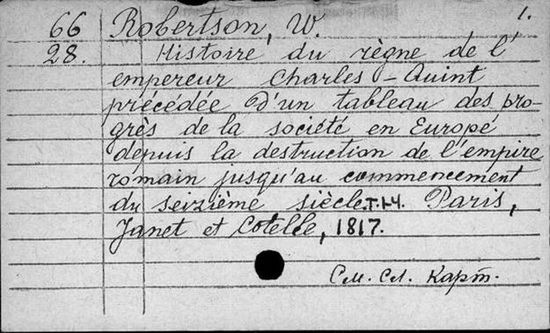 1.
66 Robertson, W.
28. Histoire du règne de l'
empereur Charles-Quint
précédée d'un tableau des pro-
grès de la société en Europé
depuis la destruction de l'empire
romain jusqu'au commencement
du seizième siècle. T.1-4. Paris,
Janet et Cotelle, 1817.
См. сл. карт.